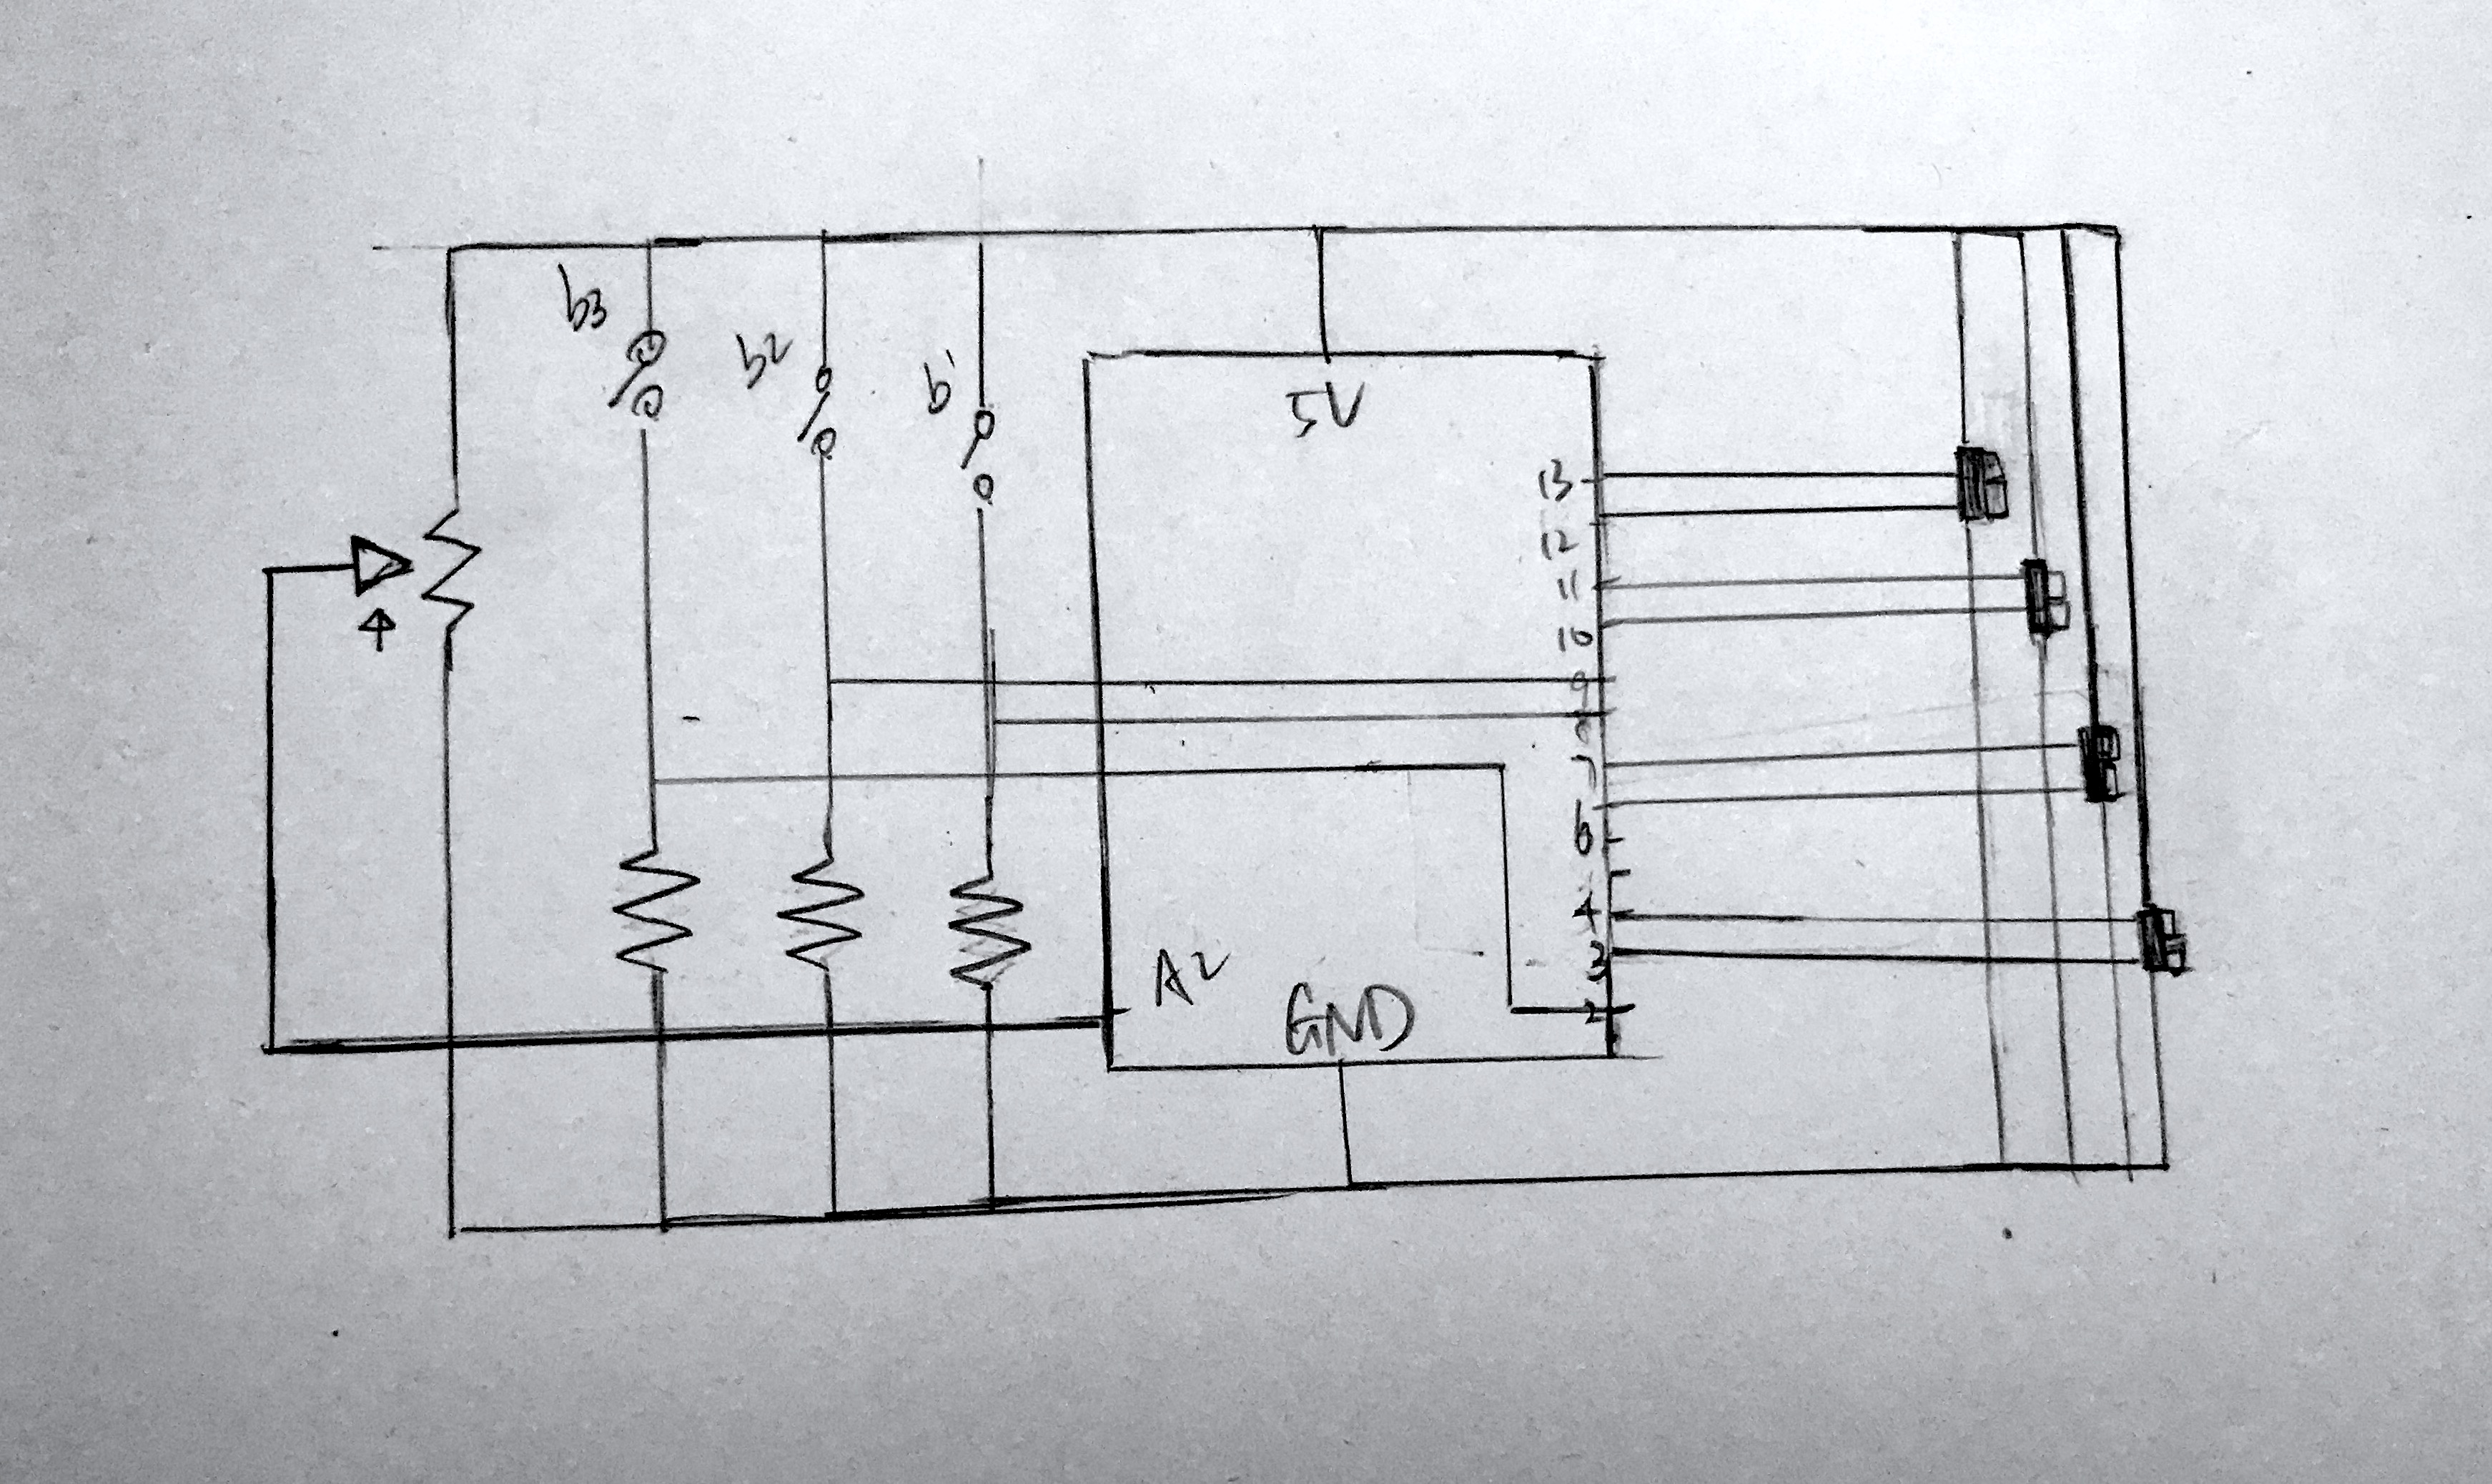 b3
b2
b'
5V
13
12
11
10
9
8
7
6
4
3
2
A2
GND